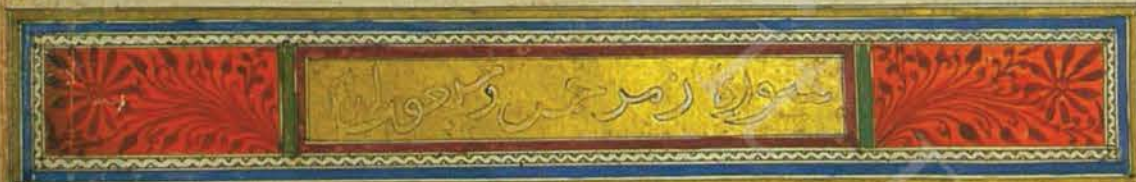 سورة زمر خمس وسبعون اية